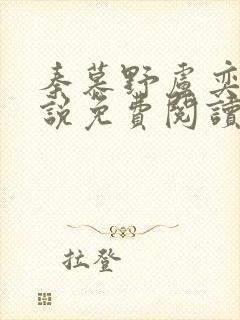 秦慕野盧奕
說免費閱讀
拉登